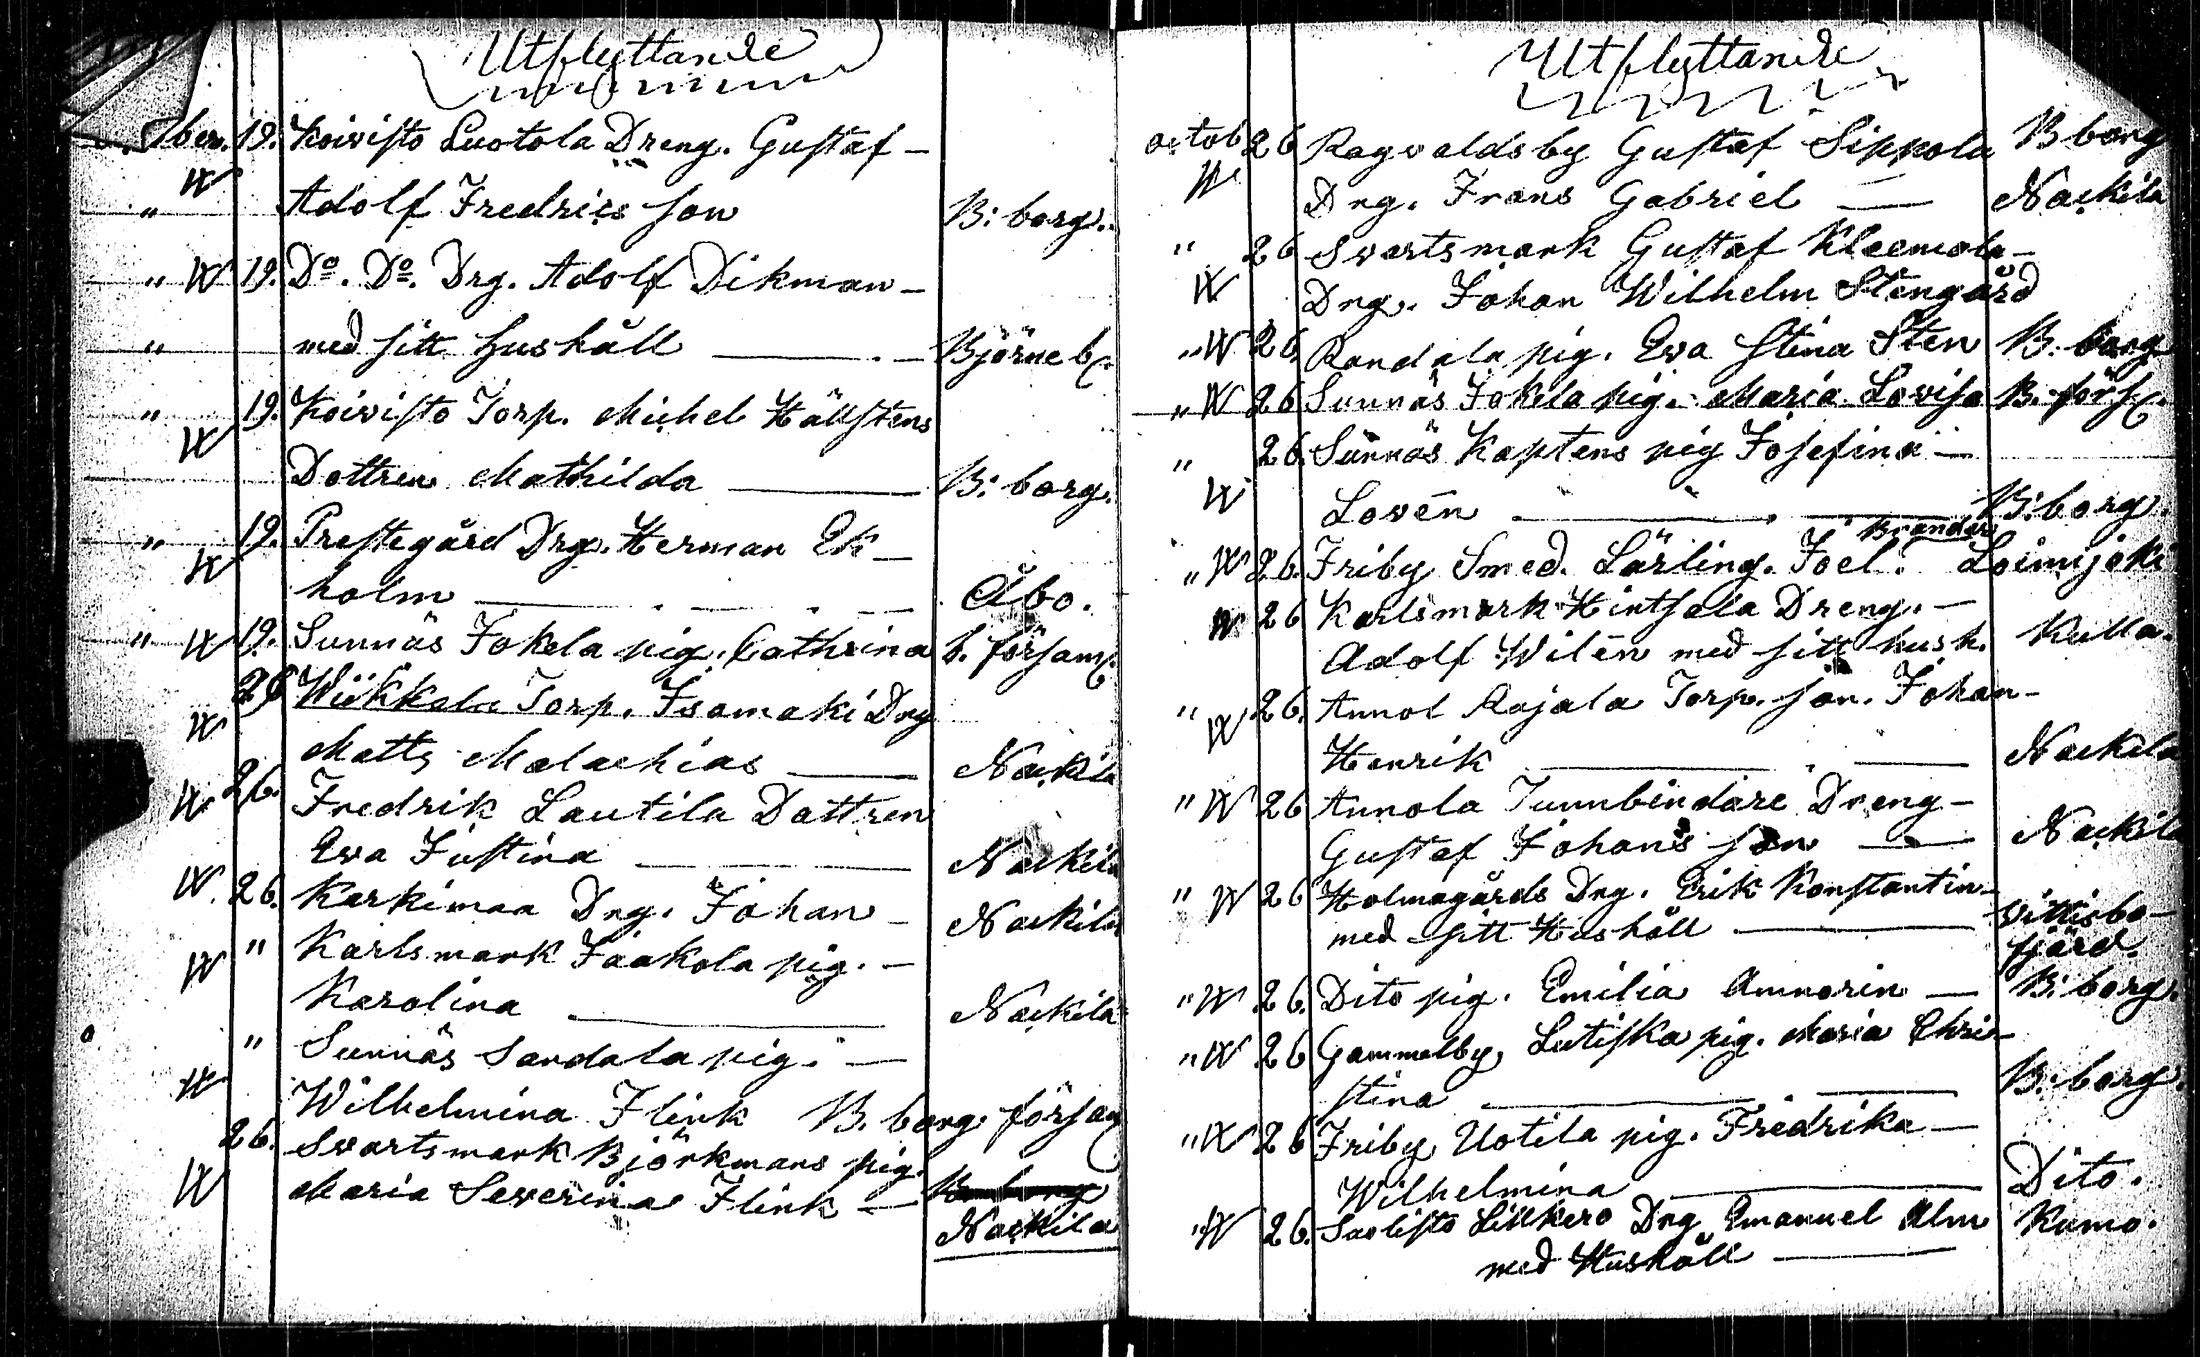 Utflyttande
ber. 19. Koivisto Luotola Dreng. Gustaf –
" Adolf Fredrics son B: borg.
" W 19. Do. Do. Drg. Adolf Dikman –
" med sitt Hushåll — Björneb.
" W 19. Koivisto Torp. Michel Hällstens
Dottren Mathilda — B: borg.
" W 19. Prestegård Drg. Herman Ek –
holm — Åbo.
" W 19. Sunnäs Jokela pig. Cathrina b. församl.
W 26 Wiikkala Torp. Isomaki Drg
Matts Malachias — Nackila
W 26. Fredrik Lautila Dottren
Eva Justina — Nackila
W. 26. Karkimaa Drg. Johan – Nackila
W " Karlsmark Jaakola pig. –
Karolina — Nackila
" Sunnäs Sandala pig. —
W Wilhelmina Flink B. borg försam
26. Svartsmark Björkmans pig.
W Maria Severina Flink — B. borg
Nackila
Utflyttande
octob 26 Ragvaldsby Gustaf Sippola B borg
W Drg. Frans Gabriel — Nackila
" 26 Svartsmark Gustaf Kleemola –
W Drg. Johan Wilhelm Stengård
" W 26. Randala pig. Eva Stina Sten B: borg
" W 26 Sunnäs Jokela pig. Maria Lovisa B. förs.
" 26. Sunnäs Kaptens pig Josefina –
W Lovén — B: borg.
Brander
" W 26. Friby Smed. Lärling. Joel. Loimijoki
W 26 Karlsmark Hintsala Dreng. –
Adolf Wilén med sitt hush. Kulla.
" W 26. Annol Rajala Torp. son. Johan –
Henrik — Nackila
" W 26 Annola Tunnbindare Dreng –
Gustaf Johans son — Nackila
" W 26 Holmagårds Drg. Erik Konstantin –
med sitt Hushåll — Vittisbo –
fjärd.
" W 26. Dito pig. Emilia Amnorin — B: borg.
" W 26 Gammelby Lutiska pig. Maria Chri –
stina — B: borg.
" W 26 Friby Uotila pig. Fredrika –
Wilhelmina — Dito.
" W 26. Suolisto Lillkero Drg Emanuel Alm Kumo.
med Hushåll —